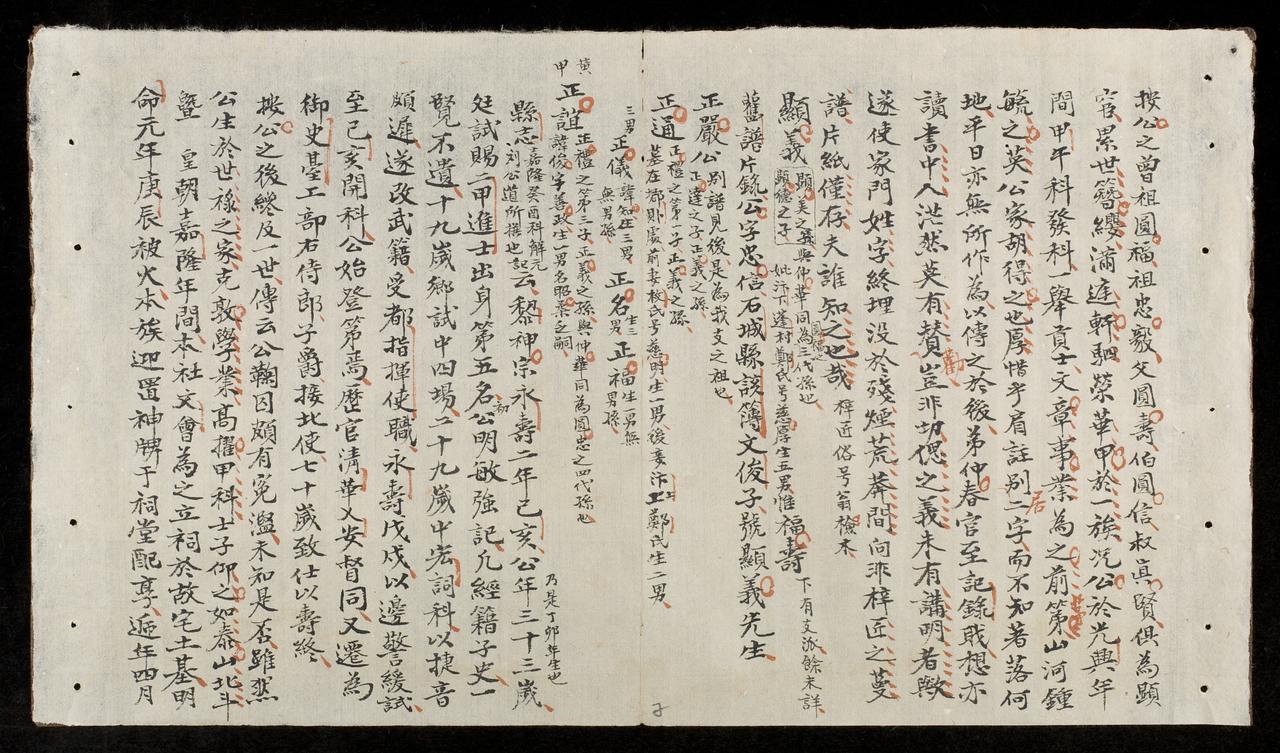 按公之曾祖圓福祖忠毅父圓壽伯圓信叔眞賢俱為顯
宦累世簪纓滿進軒駟榮華甲於一族況公於光興年
間甲午科發科一舉貢士文章事業為之前第山河鍾
居
毓之英公家胡得之也厚惜乎肩註别二字而不知著落何
地平日亦無所作為以傳之於後弟仲春官至記錄戢想亦
讀書中人泯然莫有贊豈非切偲之義未有講明者歟
勸
遂使家門姓字終埋没於殘煙荒莽間向非梓匠之蔓
譜片紙僅存夫誰知之也哉 梓匠俗号翁檢木
顯義 顯美之義與仲華同為三代孫也
顯德之子 妣汴下蓬村鄭氏号慈厚生五男惟福壽 下有支派餘未詳
舊譜片錄公字忠信石城縣該簿文俊子號顯義先生
正嚴公 别譜見後是為我支之祖也
正達之子正義之孫
正通 正禮之第一子正義之孫
墓在都貯處前妻枚氏号慈明生一男後妻汴上鄭氏生二男
三男正儀 諱知任三男 無男孫 正名 生三男 正福 生一男無男孫
黄甲
正誼 正禮之第三子正義之孫與仲華同為圓忠之四代孫也
諱俊字善政生一男名耶業乏嗣
縣志 嘉隆癸酉科解元
刘公道所撰也 記云黎神宗永壽二年己亥公年三十三歲 乃是丁卯年生也
廷試賜二甲進士出身第五名公初明敏強記凡經籍子史一
覽不遺十九歲鄉試中四塲二十九歲中宏詞科以捷音
頗遲遂改武籍受都指揮使職永壽戊戌以邊警緩試
至己亥開科公始登第焉歷官清華乂安督同又遷為
御史基工部右侍郎子爵接北使七十歲致仕以壽終
按公之後纔及一世傳云公鞫囚頗有冤濫未知是否雖然
公生於世祿之家克敦學業髙擢甲科士子仰之如泰山北斗
曁 皇朝嘉隆年間本社文會為之立祠於故宅土基明
命元年庚辰被火本族迎置神牌于祠堂配享遞年四月